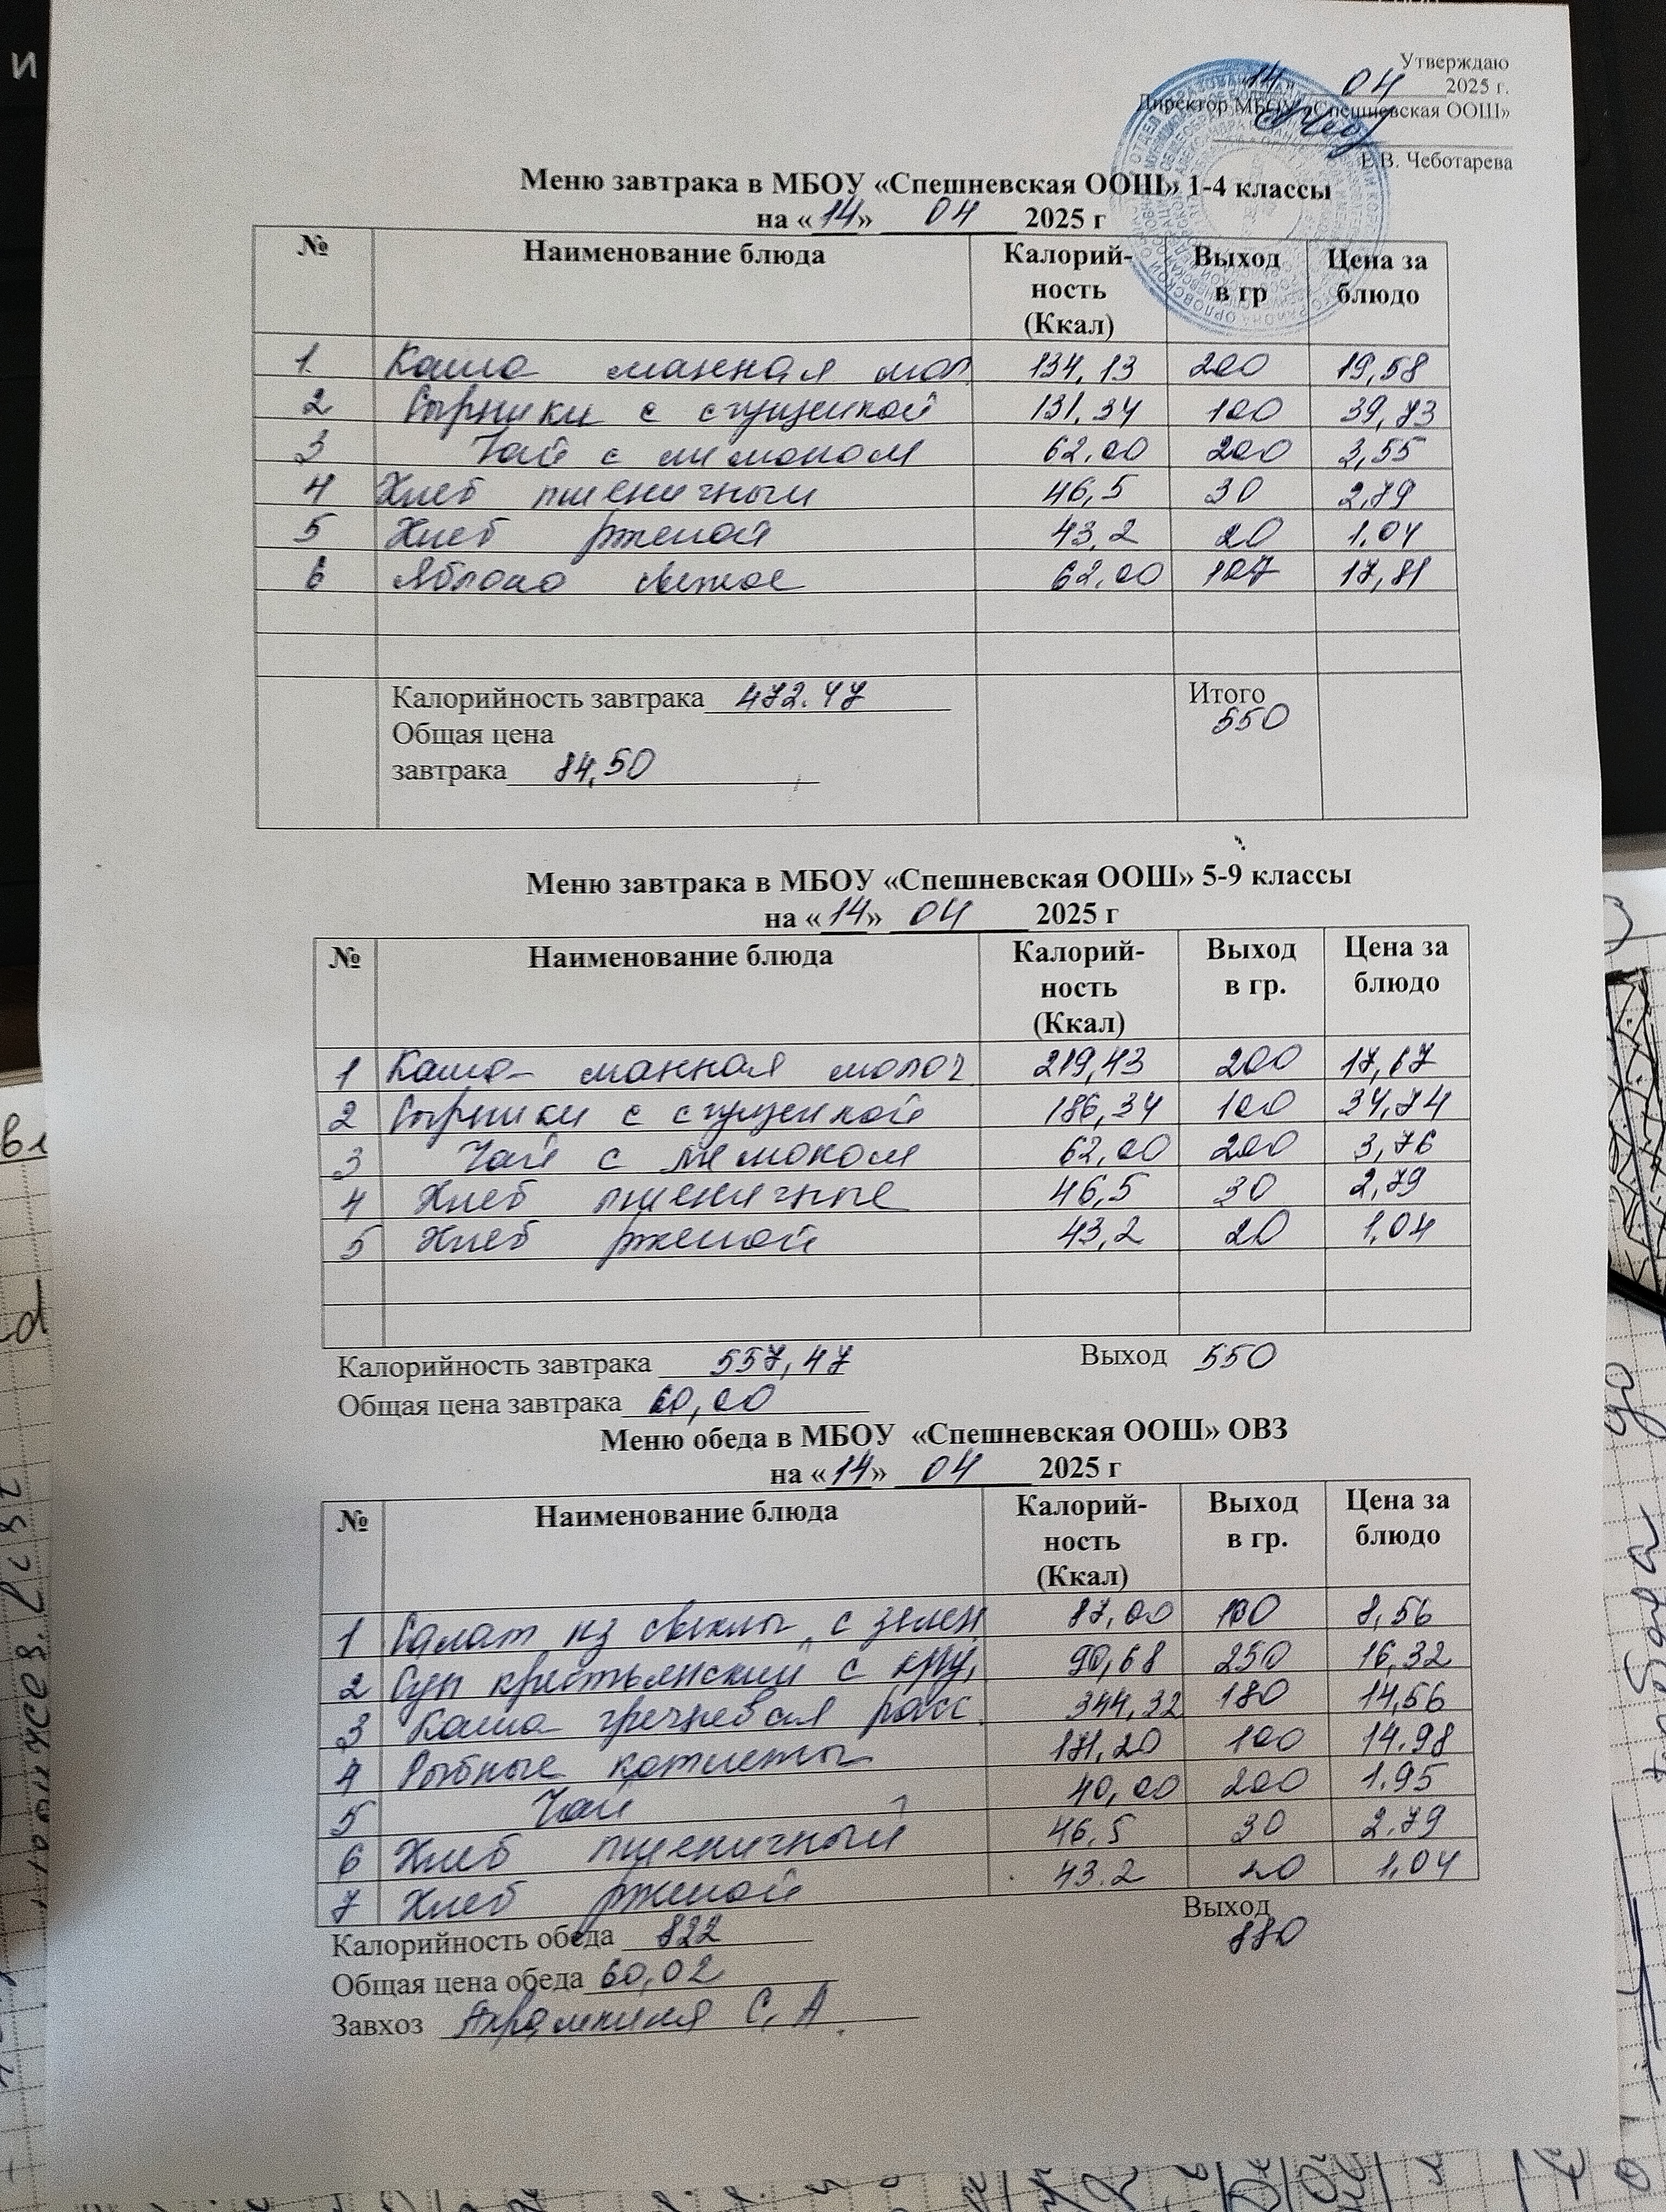 Утверждаю
14 04 2025 г.
Директор МБОУ «Спешневская ООШ»
Е.В. Чеботарева
Меню завтрака в МБОУ «Спешневская ООШ» 1-4 классы
на «14» 04 2025 г
№ Наименование блюда Калорий-ность (Ккал) Выход в гр Цена за блюдо
1. Каша манная мол. 134,13 200 19,58
2 Сырники с сгущенкой 131,34 100 39,73
3 Чай с лимоном 62,00 200 3,55
4 Хлеб пшеничный 46,5 30 2,79
5 Хлеб ржаной 43,2 20 1.04
6 Яблоко свежее 62,00 17,81
Калорийность завтрака 472.47 Итого
550
Общая цена
завтрака 84,50
Меню завтрака в МБОУ «Спешневская ООШ» 5-9 классы
на «14» 04 2025 г
№ Наименование блюда Калорий-ность (Ккал) Выход в гр. Цена за блюдо
1 Каша манная молоч. 219,43 200 17,67
2 Сырники с сгущенкой 186,34 100 34,74
3 Чай с лимоном 62,00 200 3,76
4 Хлеб пшеничные 46,5 30 2,79
5 Хлеб ржаной 43,2 20 1,04
Калорийность завтрака 557,47 Выход 550
Общая цена завтрака 60,00
Меню обеда в МБОУ «Спешневская ООШ» ОВЗ
на «14» 04 2025 г
№ Наименование блюда Калорий-ность (Ккал) Выход в гр. Цена за блюдо
1 Салат из свеклы с зелен 87,00 100 8,56
2 Суп крестьянский с кру, 90,68 250 16,32
3 Каша гречневая расс. 344,32 180 14,56
4 Рыбные котлеты 171,20 100 14.98
5 Чай 40,00 200 1.95
6 Хлеб пшеничный 46,5 30 2,79
7 Хлеб ржаной 43.2 20 1,04
Выход
Калорийность обеда 822 880
Общая цена обеда 60,02
Завхоз С. А.